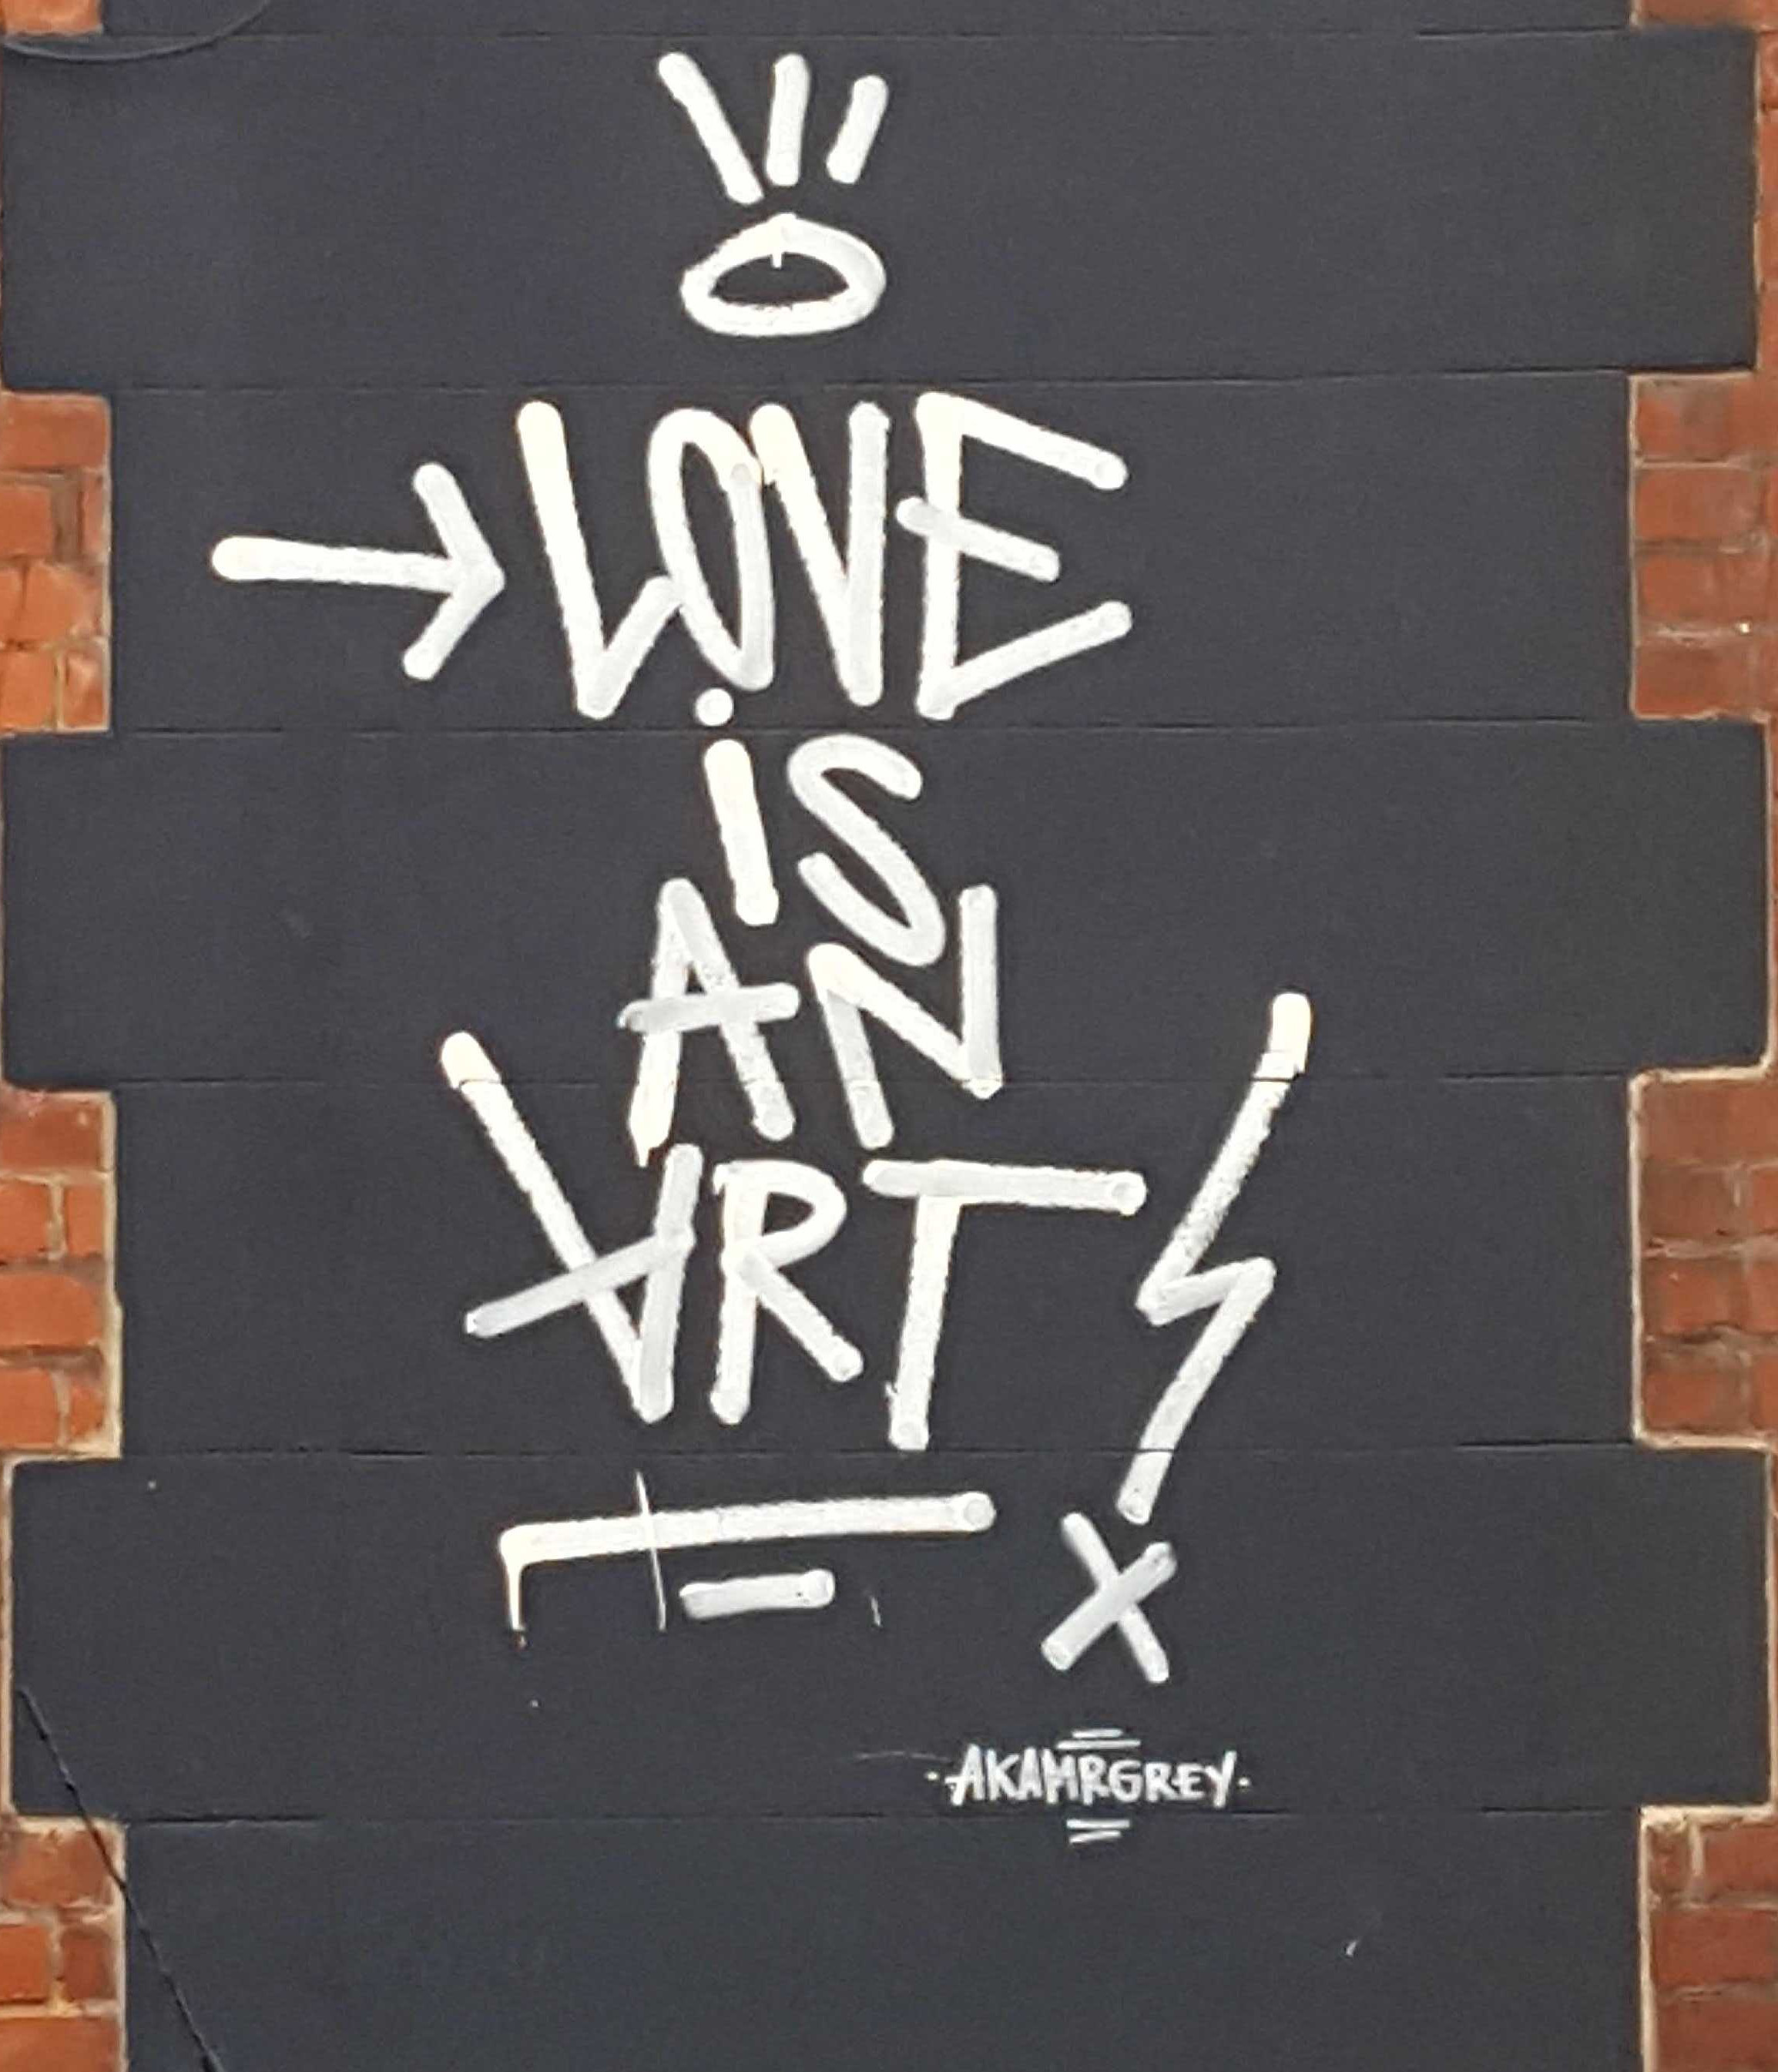 LOVE
iS
AN
ART
X
·AKAMRGREY·